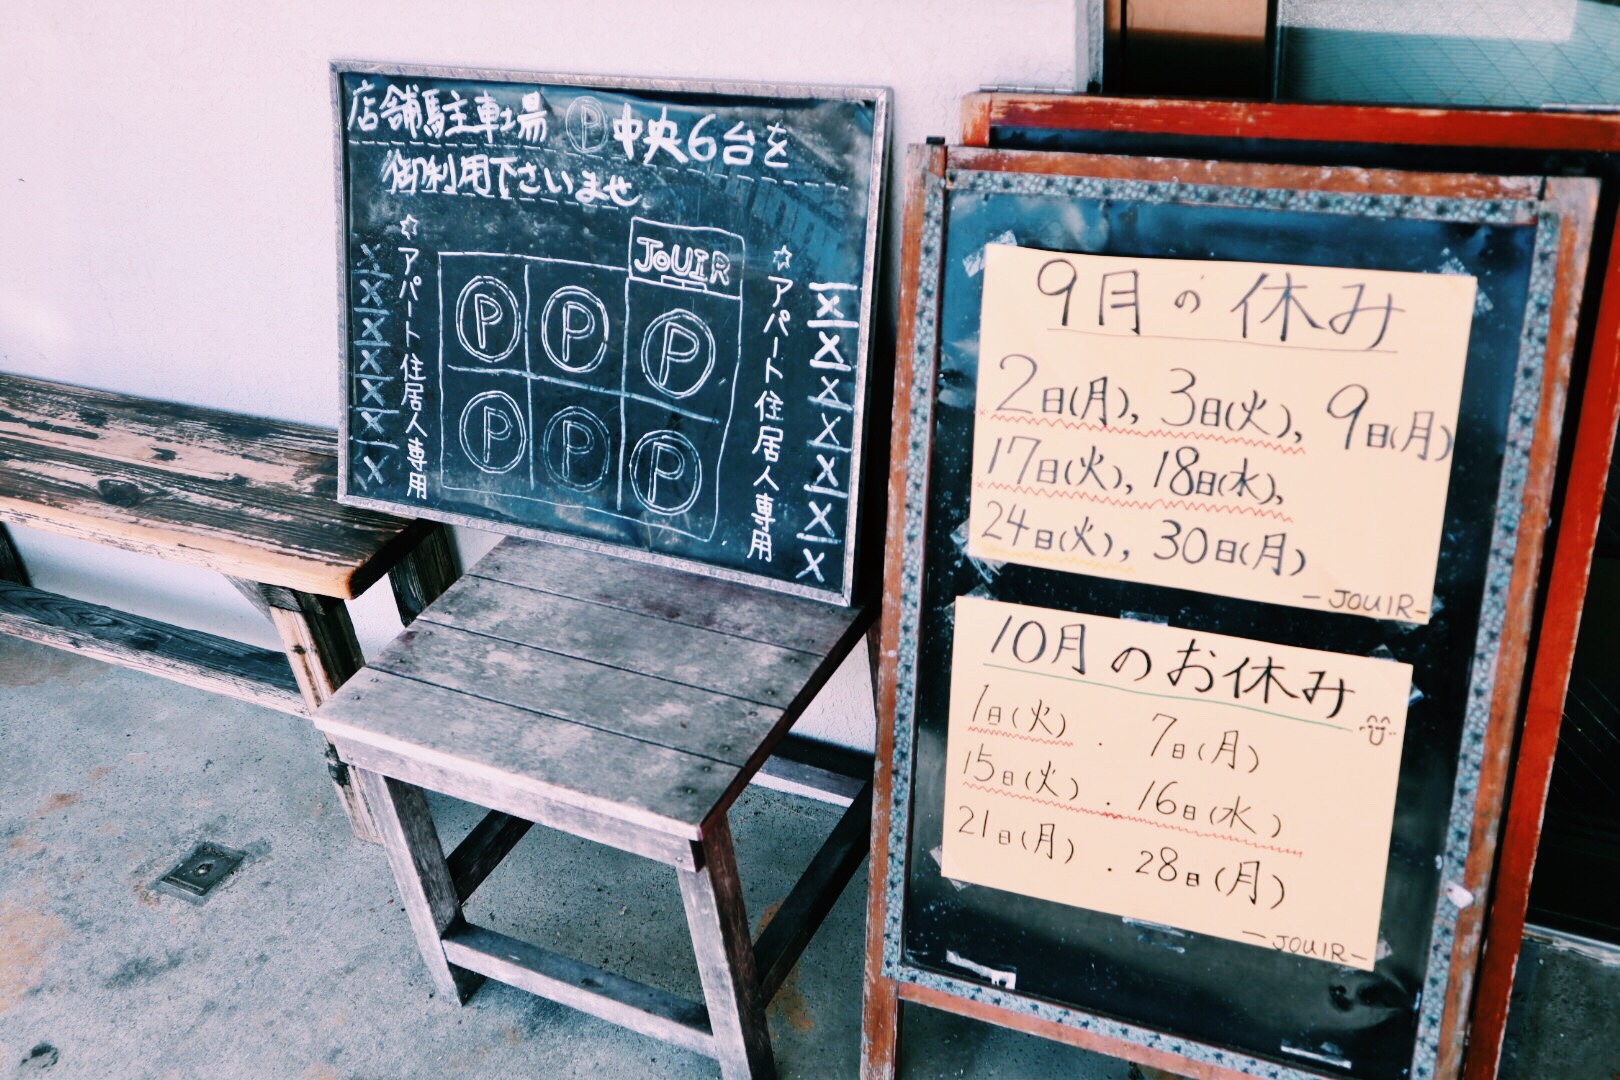 店舗駐車場 Ⓟ中央6台を
御利用下さいませ
☆アパート住居人専用
X
X
X
X
X
X
X
JOUIR
P P P
P P P
☆アパート住居人専用
X
X
X
X
X
X
X
9月の休み
2日(月), 3日(火), 9日(月)
17日(火), 18日(水),
24日(火), 30日(月)
-JOUIR-
10月のお休み
1日(火) . 7日(月)
15日(火) . 16日(水)
21日(月) . 28日(月)
-JOUIR-